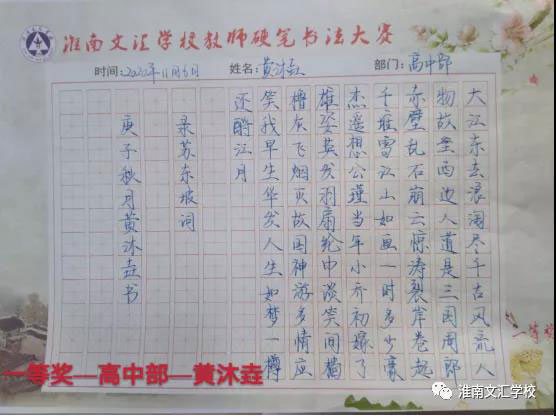 淮南文汇学校教师硬笔书法大赛
时间:2020年11月6日 姓名:黄沐垚 部门:高中部
大江东去浪淘尽千古风流人
物故垒西边人道是三国周郎
赤壁乱石崩云惊涛裂岸卷起
千堆雪江山如画一时多少豪
杰遥想公瑾当年小乔初嫁了
雄姿英发羽扇纶巾谈笑间樯
橹灰飞烟灭故国神游多情应
笑我早生华发人生如梦一樽
还酹江月
录苏东坡词
庚子秋月黄沐垚书
一等奖—高中部—黄沐垚
淮南文汇学校